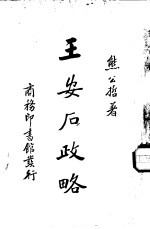 熊公哲著
王安石政略
商務印書館發行